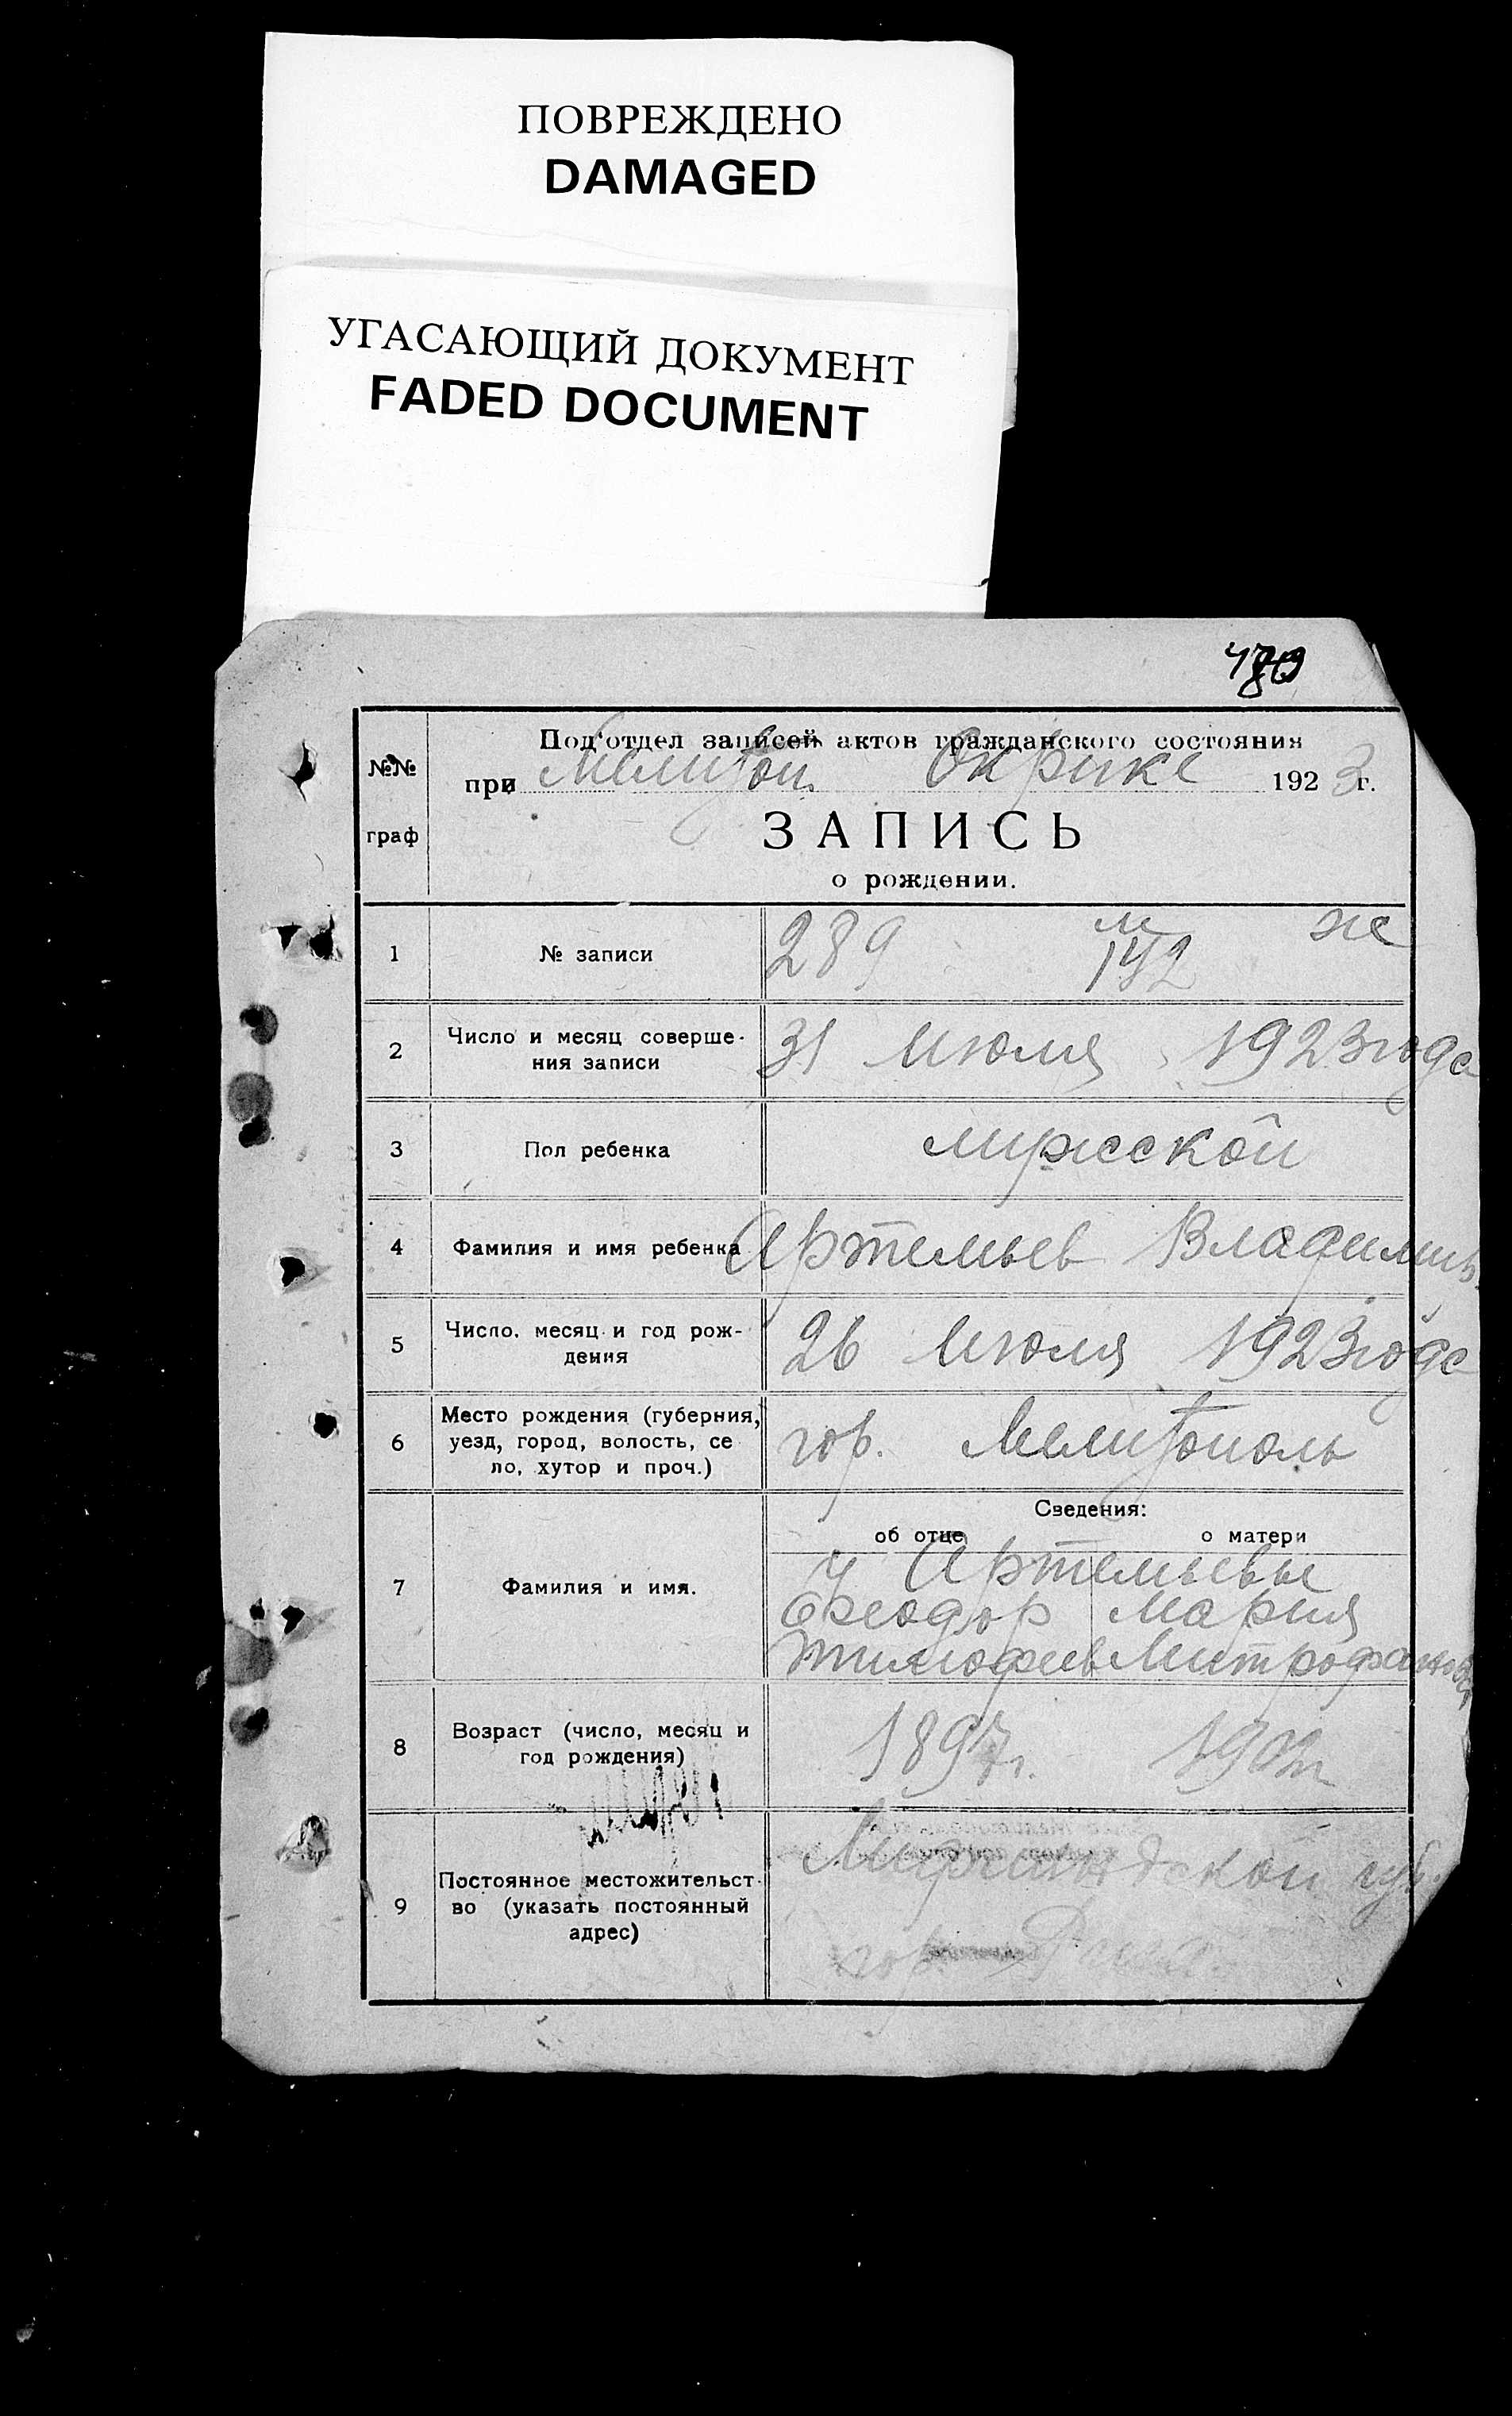 ПОВРЕЖДЕНО
DAMAGED
УГАСАЮЩИЙ ДОКУМЕНТ
FADED DOCUMENT
№№ граф
Под'отдел записей актов гражданского состояния
при Мелитоп. Окрике 1923 г.
ЗАПИСЬ
о рождении.
1 № записи 289 м ж
142
2 Число и месяц соверше-
ния записи 31 Июля 1923 года
3 Пол ребенка мужской
4 Фамилия и имя ребенка Артемьев Владимир
5 Число, месяц и год рож-
дения 26 Июля 1923 года
6 Место рождения (губерния,
уезд, город, волость, се
ло, хутор и проч.) гор. Мелитополь
Сведения:
об отце о матери
7 Фамилия и имя. Артемьевы
Феодор Мария
Тимофеев Митрофанова
8 Возраст (число, месяц и
год рождения) 1897г. 1902г
9 Постоянное местожительст-
во (указать постоянный
адрес) Лифляндской губ.
гор. Рига